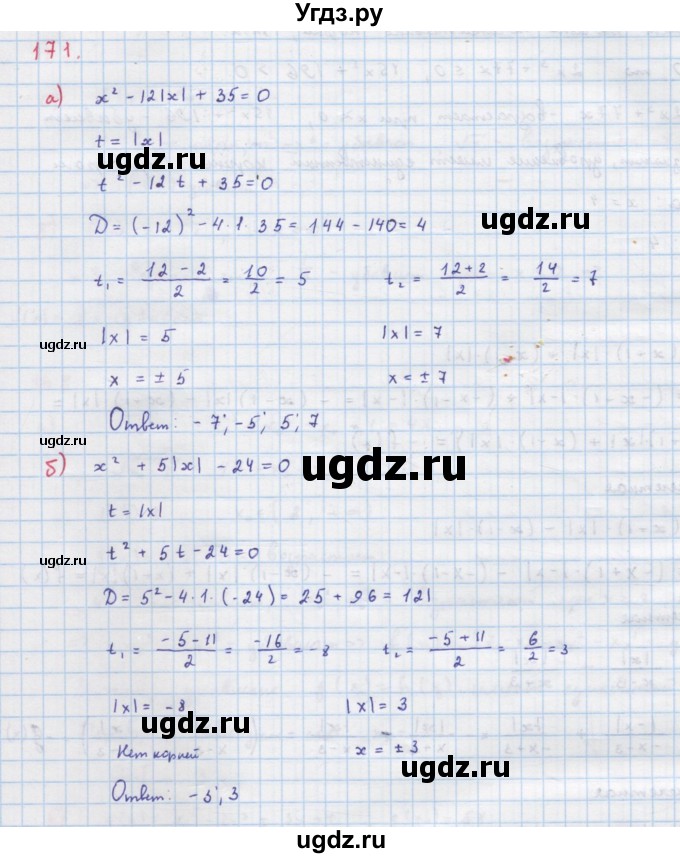 Угдз.ру
171.
а) x² - 12|x| + 35 = 0
t = |x|
ugdz.ru
t² - 12t + 35 = 0
ugdz.ru
D = (-12)² - 4·1·35 = 144 - 140 = 4
t₁ = (12 - 2)/2 = 10/2 = 5 t₂ = (12 + 2)/2 = 14/2 = 7
ugdz.ru
|x| = 5 |x| = 7
ugdz.ru
x = ± 5 x = ± 7
Ответ: -7; -5; 5; 7
ugdz.ru
б) x² + 5|x| - 24 = 0
t = |x|
t² + 5t - 24 = 0
ugdz.ru
D = 5² - 4·1·(-24) = 25 + 96 = 121
t₁ = (-5 - 11)/2 = -16/2 = -8 t₂ = (-5 + 11)/2 = 6/2 = 3
ugdz.ru
|x| = -8 |x| = 3
ugdz.ru
Нет корней x = ± 3
ugdz.ru
Ответ: -3; 3
ugdz.ru